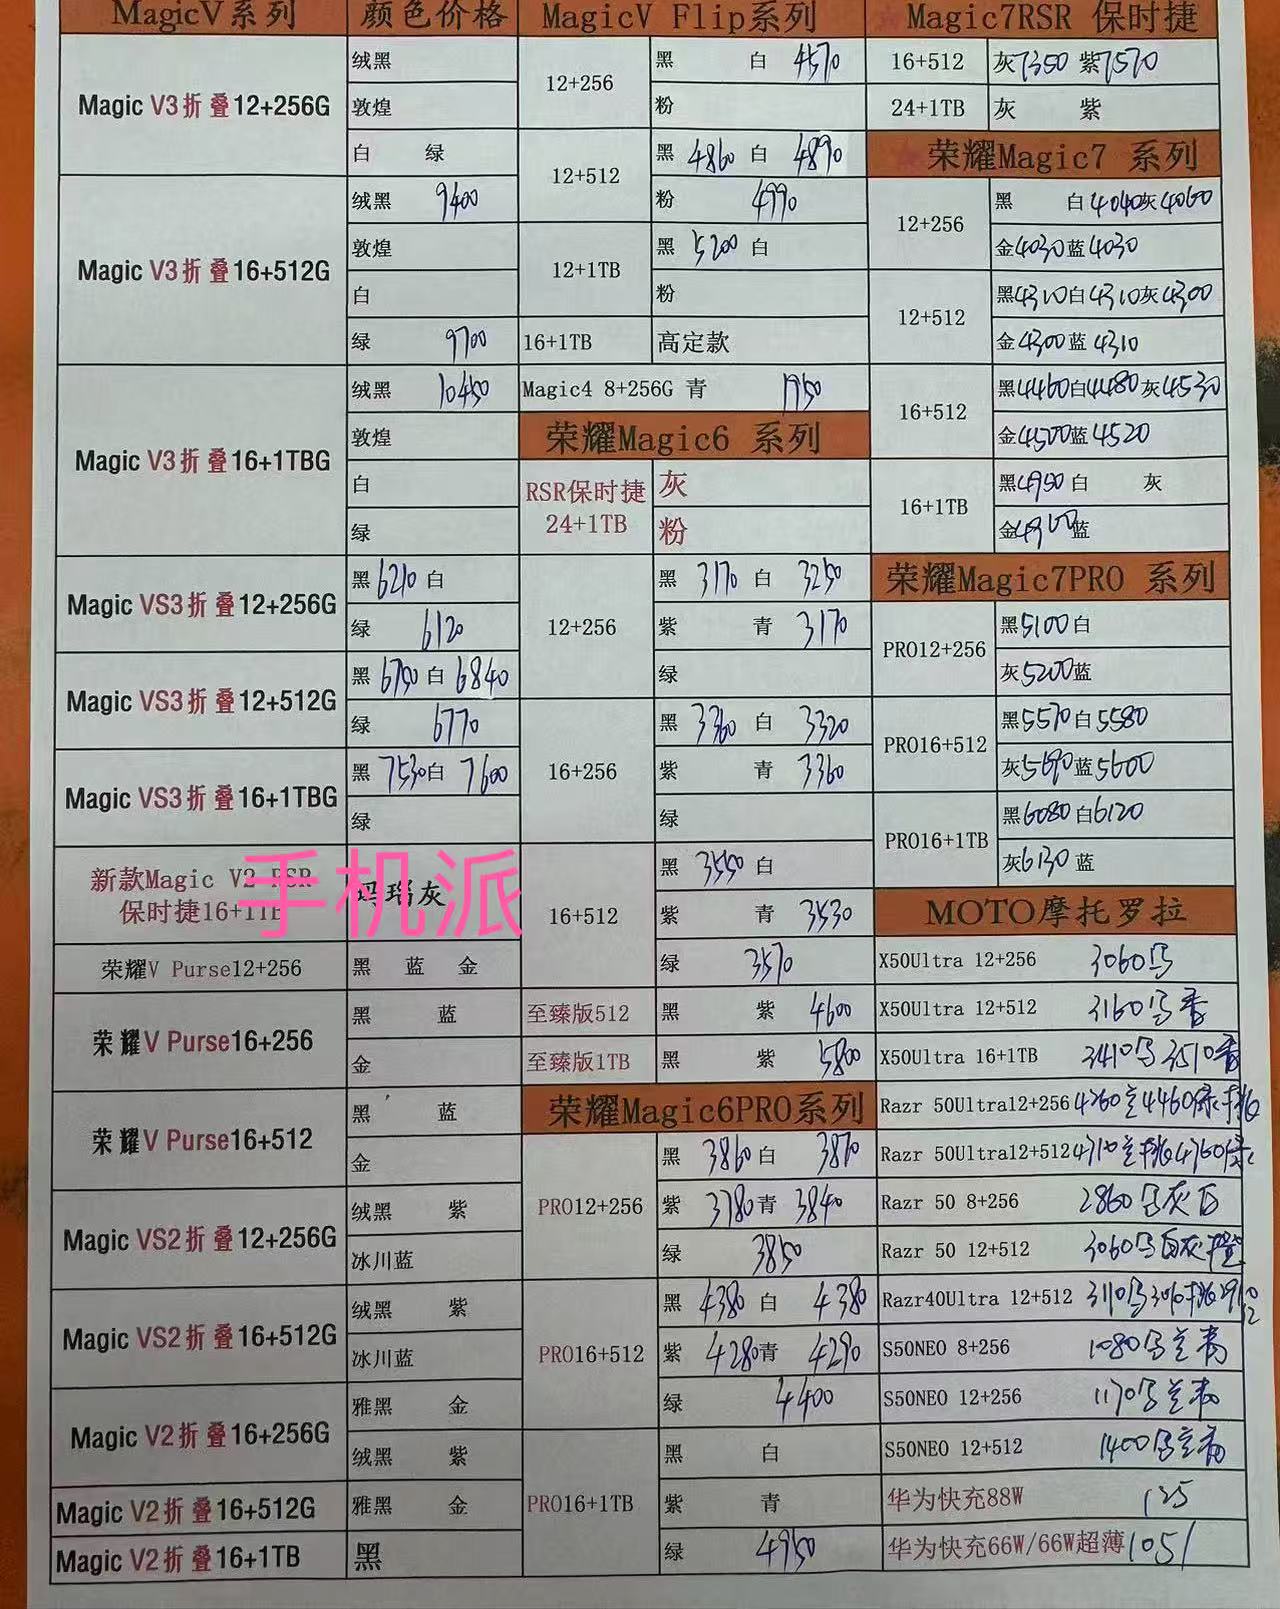 MagicV系列 颜色价格
Magic V3折叠12+256G 绒黑
敦煌
白 绿
Magic V3折叠16+512G 绒黑 9400
敦煌
白
绿 9700
Magic V3折叠16+1TBG 绒黑 10450
敦煌
白
绿
Magic VS3折叠12+256G 黑6210白
绿 6120
Magic VS3折叠12+512G 黑6750白 6840
绿 6770
Magic VS3折叠16+1TBG 黑7530白 7600
绿
新款Magic V2 RSR
保时捷16+1TB 玛瑙灰
手机派
荣耀V Purse12+256 黑 蓝 金
荣耀V Purse16+256 黑 蓝
金
荣耀V Purse16+512 黑 蓝
金
Magic VS2折叠12+256G 绒黑 紫
冰川蓝
Magic VS2折叠16+512G 绒黑 紫
冰川蓝
Magic V2折叠16+256G 雅黑 金
绒黑 紫
Magic V2折叠16+512G 雅黑 金
Magic V2折叠16+1TB 黑
MagicV Flip系列
12+256 黑 白 4570
粉
12+512 黑 4860 白 4890
粉 4990
12+1TB 黑 5200 白
粉
16+1TB 高定款
Magic4 8+256G 青 1950
荣耀Magic6 系列
RSR保时捷
24+1TB 灰
粉
12+256 黑 3170 白 3250
紫 青 3170
绿
16+256 黑 3360 白 3320
紫 青 3360
绿
16+512 黑 3550 白
紫 青 3530
绿 3570
至臻版512 黑 紫 4600
至臻版1TB 黑 紫 5800
荣耀Magic6PRO系列
PRO12+256 黑 3860白 3870
紫 3780青 3840
绿 3850
PRO16+512 黑 4380 白 4380
紫 4280青 4290
绿 4400
PRO16+1TB 黑 白
紫 青
绿 4950
Magic7RSR 保时捷
16+512 灰7350 紫7570
24+1TB 灰 紫
荣耀Magic7 系列
12+256 黑 白4040灰4060
金4030蓝4030
12+512 黑4310白4310灰4300
金4300蓝4310
16+512 黑4460白4480灰4530
金4500蓝4520
16+1TB 黑4950白 灰
金4900蓝
荣耀Magic7PRO 系列
PRO12+256 黑5100白
灰5200蓝
PRO16+512 黑5570白5580
灰5690蓝5600
PRO16+1TB 黑6080白6120
灰6130蓝
MOTO摩托罗拉
X50Ultra 12+256 3060
X50Ultra 12+512 3160
X50Ultra 16+1TB 3410 3510
Razr 50Ultra12+256 4260 4460
Razr 50Ultra12+512 4710 4760
Razr 50 8+256 2860 灰白
Razr 50 12+512 3060 白灰
Razr40Ultra 12+512 3110
S50NEO 8+256 1080
S50NEO 12+256 1170
S50NEO 12+512 1400
华为快充88W 125
华为快充66W/66W超薄 105